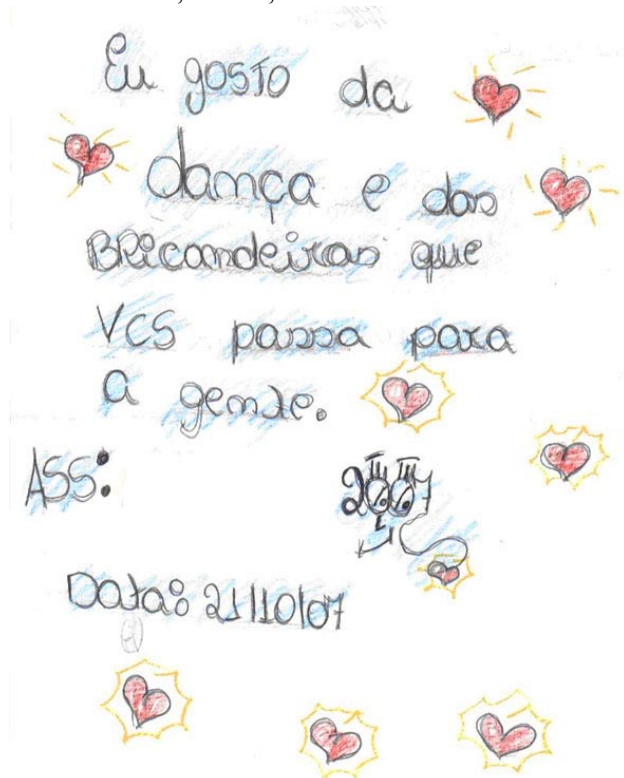 Eu gosto da
dança e das
BRicandeiras que
VCS passa para
a gente.
ASS:
2007
Data: 21/10/07